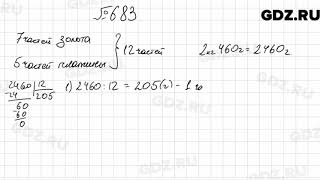 GDZ.RU
№683
7 частей золота
5 частей платины } 12 частей
2 кг 460 г = 2460 г
2460 | 12
24 | 205
60
60
0
1) 2460 : 12 = 205 (г) - 1